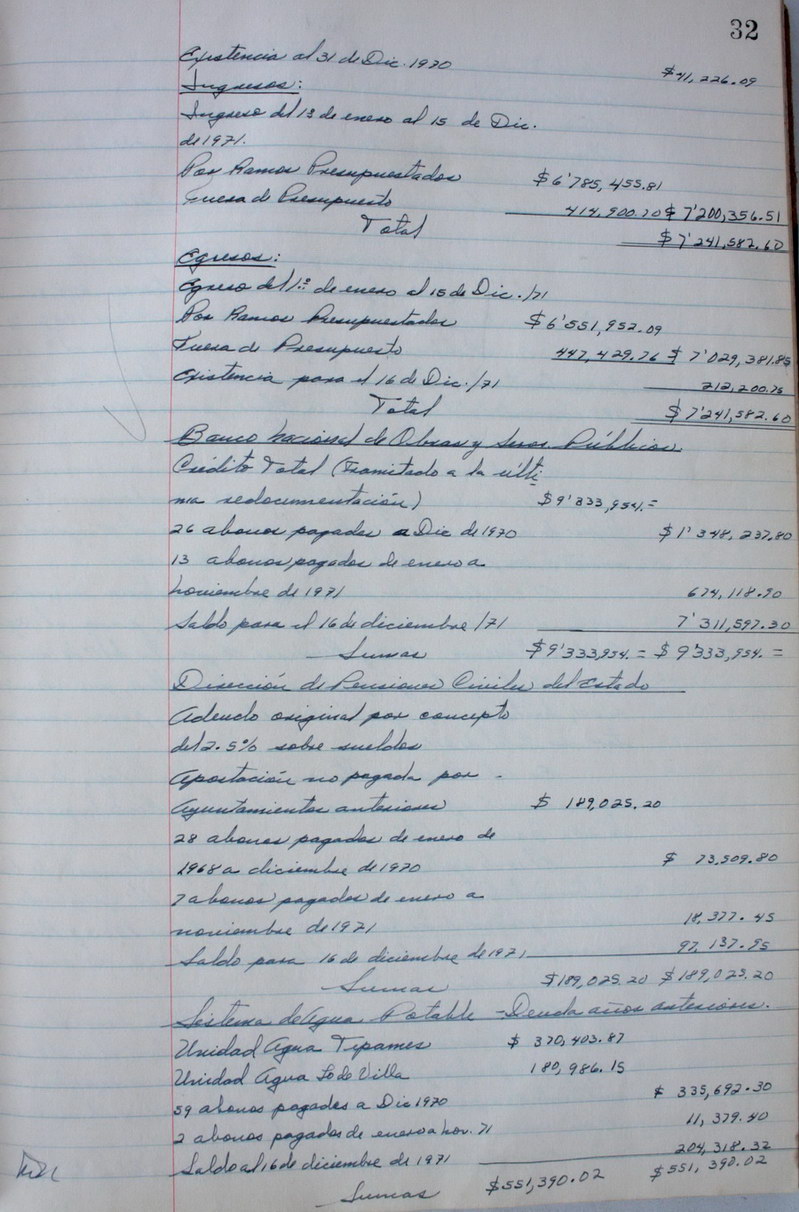 32
Existencia al 31 de Dic. 1970 $41,226.09
Ingresos:
Ingreso del 1º de enero al 15 de Dic.
de 1971.
Por Ramos Presupuestados $6'785,455.81
Fuera de Presupuesto 414,900.70 $7'200,356.51
Total $7'241,582.60
Egresos:
Egreso del 1º de enero al 15 de Dic./71
Por Ramos Presupuestados $6'551,952.09
Fuera de Presupuesto 447,429.76 $7'029,381.85
Existencia para el 16 de Dic./71 212,200.75
Total $7'241,582.60
Banco Nacional de Obras y Públicos
Crédito Total (Tramitado a la últi
ma redocumentación) $9'333,954.=
26 abonos pagados a Dic de 1970 $1'348,237.80
13 abonos pagados de enero a
noviembre de 1971 674,118.90
Saldo para el 16 de diciembre/71 7'311,597.30
Sumas $9'333,954.= $9'333,954.=
Dirección de Pensiones Civiles del Estado
Adeudo original por concepto
del 2.5% sobre sueldos
Aportación no pagada por -
Ayuntamientos anteriores $189,025.20
28 abonos pagados de enero de
1968 a diciembre de 1970 $73,509.80
7 abonos pagados de enero a
noviembre de 1971 18,377.45
Saldo para 16 de diciembre de 1971 97,137.95
Sumas $189,025.20 $189,025.20
Sistema de Agua Potable - Deuda años anteriores.
Unidad Agua Tepames $370,403.87
Unidad Agua Lo de Villa 180,986.15
59 abonos pagados a Dic 1970 $335,692.30
2 abonos pagados de enero a Nov. 71 11,379.40
Saldo al 16 de diciembre de 1971 204,318.32
Sumas $551,390.02 $551,390.02